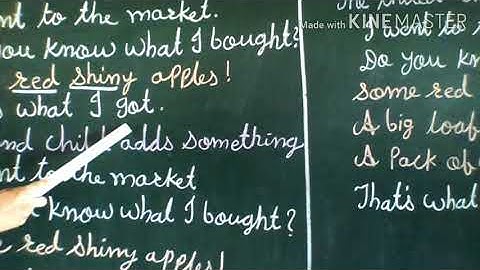 nt to the market.
you know what I bought?
red shiny apples!
s what I got.
nd child adds something
nt to the market
know what I bought?
e red shiny apples!
Made with KINEMASTER
I went to
Do you kn
some red
A big loaf
A Pack of
That's what